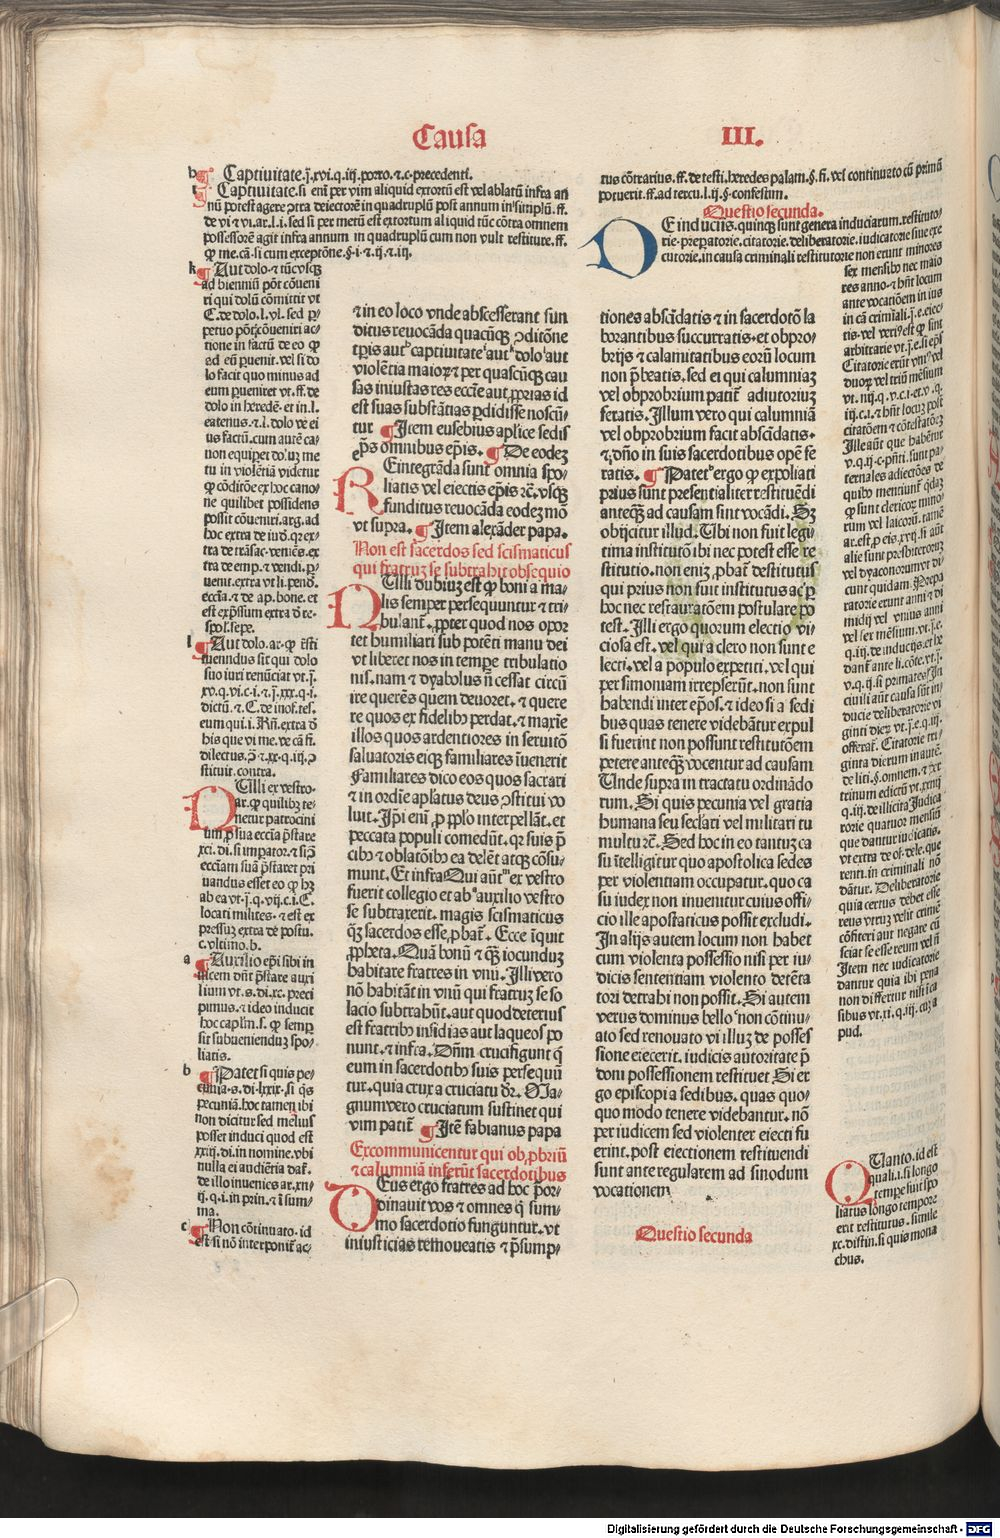 Causa III.
b ¶ Captiuitate.j̄.xvi.q.iij.porro.⁊.c.precedenti.
¶ Captiuitate.si eni per vim aliquid extortū est vel ablatū infra an
nū potest agere ↄtra deiectorē in quadruplū post annum in simplū.ff.
de vi ⁊ vi.ar.l.i.sed si per metū est extortum aliquid tūc cōtra omnem
possessorē agit infra annum in quadruplū cum non vult restituere.ff.
ꝙ me.cā.si cum exceptōne.§.i.⁊.ij.⁊.iij.
k ¶ Aut dolo.⁊ tūc vsqꝫ
ad bienniū pōt cōueni
ri qui dolū cōmittit vt
C.de dolo.l.vl.sed ꝑ⸗
petuo pōt ↄueniri ac⸗
tione in factū de eo ꝙ
ad eū ꝑuenit.vel si do
lo facit quo minus ad
eum ꝑueniret vt.ff.de
dolo in heredē.et in.l.
eatenus.⁊.l.dolo ve ei
us factū.cum autē ca⸗
non equipet dolū me
tu in violētia videtur
ꝙ cōditōe ex hoc cano⸗
ne quilibet possidens
possit cōueniri.arg.ad
hoc extra de iurō.qr ex⸗
tra de trāsac.veniēs.ex
tra de emp.⁊ vendi.ꝑ⸗
uenit.extra vt li.pend.
eccīa.⁊ de ap.bone.et
est exp̄ssum extra d̄ re⸗
spol.sepe.
l ¶ Aut dolo.ar.ꝙ
uenndus sit qui dolo
suo iuri renūciat vt.j̄.
xv.q.vi.c.i.⁊.j̄.xxx.q.i.
dictū.⁊.C.de inof.tes.
eum qui.i.Rn̄.extra d̄
his que vi me.ve cā fi.
dilectus.ↄ̄.⁊.xx.q.iij.ↄ
stituit.contra.
NUlli ex vestro⸗
ar.ꝙ quilibꝫ te⸗
netur patrocini
um ꝓ sua eccīa p̄stare
xci.di.si impator.⁊ si ↄ̄
eccīam suā p̄staret pri
uandus esset eo ꝙ hꝫ
ab ea vt.j̄.q.vij.c.i.C.
locati milites.⁊ est ex
pressuꝫ extra de postu.
c.vltimo.b.
a ¶ Auxilio ep̄i sibi in
uicem dn̄t p̄stare auxi
lium vt.s.di.xc.preci
pimus.⁊ ideo inducit
hoc caplm̄.s.ꝙ semꝑ
sit subueniendum spo⸗
liatis.
b ¶ Patet si quis pe⸗
cunia.s.di.lxxix.si q̄s
pecuniā.hoc tamen ibi
non dicitur sed melius
posset induci quod est
xxiij.di.in nomine.vbi
nulla ei audiētia dat̄.
de illo inuenies ar.xxi⸗
ij.q.i.in prin.⁊ ī sum⸗
ma.
c ¶ Non cōtinuato.id
est si nō interponit̄ ac⸗
⁊ in eo loco vnde abscesserant fun
ditus reuocāda quacūqꝫ ↄditōne
tꝑis aut captiuitate aut dolo aut
violētia maioꝝ ⁊ per quascūqꝫ cau
sas iniustas res eccīe aut ꝓprias id
est suas substātias ꝑdidisse noscū⸗
tur ¶ Item eusebius aplice sedis
ep̄s omnibus ep̄is. ¶ De eodeꝫ
REintegrāda sunt omnia spo⸗
liatis vel eiectis ep̄is ⁊c̄.vsqꝫ
funditus reuocāda eodeꝫ mō
vt supra. ¶ Item alexāder papa.
Non est sacerdos sed scismaticus
qui fratruꝫ se subtrahit obsequio
NUlli dubiuꝫ est ꝙ boni a ma⸗
lis semper persequuntur ⁊ tri⸗
bulant̄.ꝓpter quod nos opor
tet humiliari sub potēti manu dei
vt liberet nos in tempe tribulatio
nis.nam ⁊ dyabolus n̄ cessat circū
ire querēs quem deuoret.⁊ quere
re quos ex fidelibꝰ perdat.⁊ maxīe
illos quos ardentiores in seruitō
saluatoris eiqꝫ familiares inuenerit
Familiares dico eos quos sacrari
⁊ in ordīe ap̄latus deus ↄstitui vo
luit.Ip̄i enī ꝓ pplo interpellāt.et
peccata populi comedūt.qr suis p̄
cibꝰ ⁊ oblatōibꝰ ea delēt atqꝫ cōsu⸗
munt.Et infra Qui aūt ex vestro
fuerit collegio et ab auxilio vestro
se subtraxerit.magis scismaticus
q̄ꝫ sacerdos esse ꝓbat̄.Ecce iquit
ꝓpheta.Quā bonū ⁊ q̄ꝫ iocunduꝫ
habitare fratres in vnū.Illi vero
nō habitāt in vnū qui fratruꝫ se so
lacio subtrahūt.aut quod deterius
est fratribꝰ insidias aut laqueos po
nunt.⁊ infra.Dn̄m crucifigunt q̄
eum in sacerdotibꝰ suis persequū
tur.quia crux a cruciatu d̄r.Ma⸗
gnum vero cruciatum sustinet qui
vim patit̄ ¶ Itē fabianus papa
Excommunicentur qui obꝓbriū
⁊ calumniā inferūt sacerdotibus
DEus ergo fratres ad hoc p̄or⸗
dinauit vos ⁊ omnes q̄ sum⸗
mo sacerdotio funguntur.vt
iniusticias remoueatis ⁊ p̄sump⸗
tiones abscīdatis ⁊ in sacerdotō la
borantibus succurratis.et obpro⸗
brijs ⁊ calamitatibus eorū locum
non p̄beatis.sed ei qui calumniaꝫ
vel obprobrium patit̄ adiutoriuꝫ
feratis.Illum vero qui calumniā
vel obprobrium facit abscīdatis.
⁊ dn̄o in suis sacerdotibus opē fe
ratis. ¶ Patet ergo ꝙ expoliati
prius sunt presentialiter restituēdi
anteqꝫ ad causam sint vocādi.Sꝫ
obijcitur illud.Ubi non fuit legi⸗
tima institutō ibi nec potest esse re
stitutio.non eniꝫ ꝓbat̄ destitutus
qui prius non fuit institutus ac ꝑ
hoc nec restauratōem postulare po
test.Illi ergo quorum electio vi⸗
ciosa est.vel qui a clero non sunt e
lecti.vel a populo expetiti.vel qui
per simoniam irrepserūt.non sunt
habendi inter ep̄os.⁊ ideo si a sedi
bus quas tenere videbātur expul
si fuerint non possunt restitutōem
petere anteqꝫ vocentur ad causam
Unde supra in tractatu ordinādo
rum.Si quis pecunia vel gratia
humana seu sectlari vel militari tu
multu ⁊c̄.Sed hoc in eo tantuꝫ ca
su intelligitur quo apostolica sedes
per violentiam occupatur.quo ca
su iudex non inuenitur cuius offi⸗
cio ille apostaticus possit excludi.
In alijs autem locum non habet
cum violenta possessio nisi per iu⸗
dicis sententiam violento detēta
tori detrahi non possit.Si autem
verus dominus bello non cōtinu⸗
ato sed renouato vi illuꝫ de posses
sione eiecerit.iudicis autoritate p̄
doni possessionem restituet Si er
go episcopi a sedibus.quas quo⸗
quo modo tenere videbantur.nō
per iudicem sed violenter eiecti fu
erint.post eiectionem restituendi
sunt ante regularem ad sinodum
vocationem
Questio secunda
rus cōtrarius.ff.de testi.heredes palam.§.fi.vel continuato cū primū
potuerit.ff.ad tercu.l.ij.§.confestum.
Questio secunda.
DE inducijs.quinqꝫ sunt genera induciarum.restituto⸗
rie.preparatorie.citatorie.deliberatorie.iudicatorie siue exe
cutorie.in causa criminali restitutorie non erunt minores
sex mensibꝰ nec maio
res anno.⁊ hn̄t locum
ante vocatiōem in ius
in cā crimīali.j̄.e.eiec⸗
tis.vel veriꝰ est ꝙ sint
arbitrarie vt.j̄.e.si ep̄s
Citatorie erūt vniꝰ vel
duoꝝ vel triū mēsium
vt.iiij.q.v.c.i.et.v.q.
iij.c.i.⁊ hn̄t locuꝫ post
citatōem ⁊ cōtestatōeꝫ
Ille aūt que habētur
v.q.ij.c.pn̄ti.sunt pa⸗
ternales adiectōes de
quibꝰ mentiunt̄ qdaꝫ
ꝙ sunt clericoꝝ mino⸗
rum vel laicorū.tamē
ar.est ꝓ eis.xvij.si aūt
alie sunt presbiteroruꝫ
vel dyaconorum vt di
cunt quidam.Prepa
ratorie erunt anni ⁊ di
midij vel vnius anni
vel sex mēsium.vt.j̄.e.
q.iij.de inducijs.et he
dant̄ ante li.cōte.vt.j̄.
v.q.ij.si primates In
ciuili aūt causa sūt in⸗
ducie deliberatorie vi
ginti dieꝝ vt.j̄.e.q.iij.
offerat̄.Citatorie tri⸗
ginta dierum in autē.
de liti.§.omnem.⁊ xx
trinum edictū vt.xxiiij
q.iij.de illicita Iudica
torie quatuor mensiū
que dantur iudicatis.
vt extra de of.dele.que
renti.in criminali nō
dātur.Deliberatorie
quia certus debet esse
reus vtruꝫ velit crimē
cōfiteri aut negare cū
sciat se esse reum vel n̄
Item nec iudicatorie
dantur quia ibi pena
non differtur nisi ī ca
sibus vt.xi.q.iij.cuꝫ a
pud.
QUanto.id est
quali.i.si longo
tempe sint spo
liatus longo tempore
erit restitutus.simile
xc.distin.si quis mona
chus.
Digitalisierung gefördert durch die Deutsche Forschungsgemeinschaft - DFG